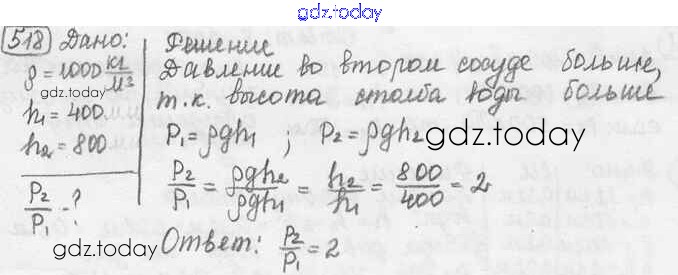 gdz.today
518 Дано:
ρ = 1000 кг/м³
gdz.today
h₁ = 400
h₂ = 800
P₂/P₁ - ?
Решение
Давление во втором сосуде больше,
т.к. высота столба воды больше
P₁ = ρgh₁ ; P₂ = ρgh₂
gdz.today
P₂/P₁ = ρgh₂/ρgh₁ = h₂/h₁ = 800/400 = 2
gdz.today
Ответ: P₂/P₁ = 2